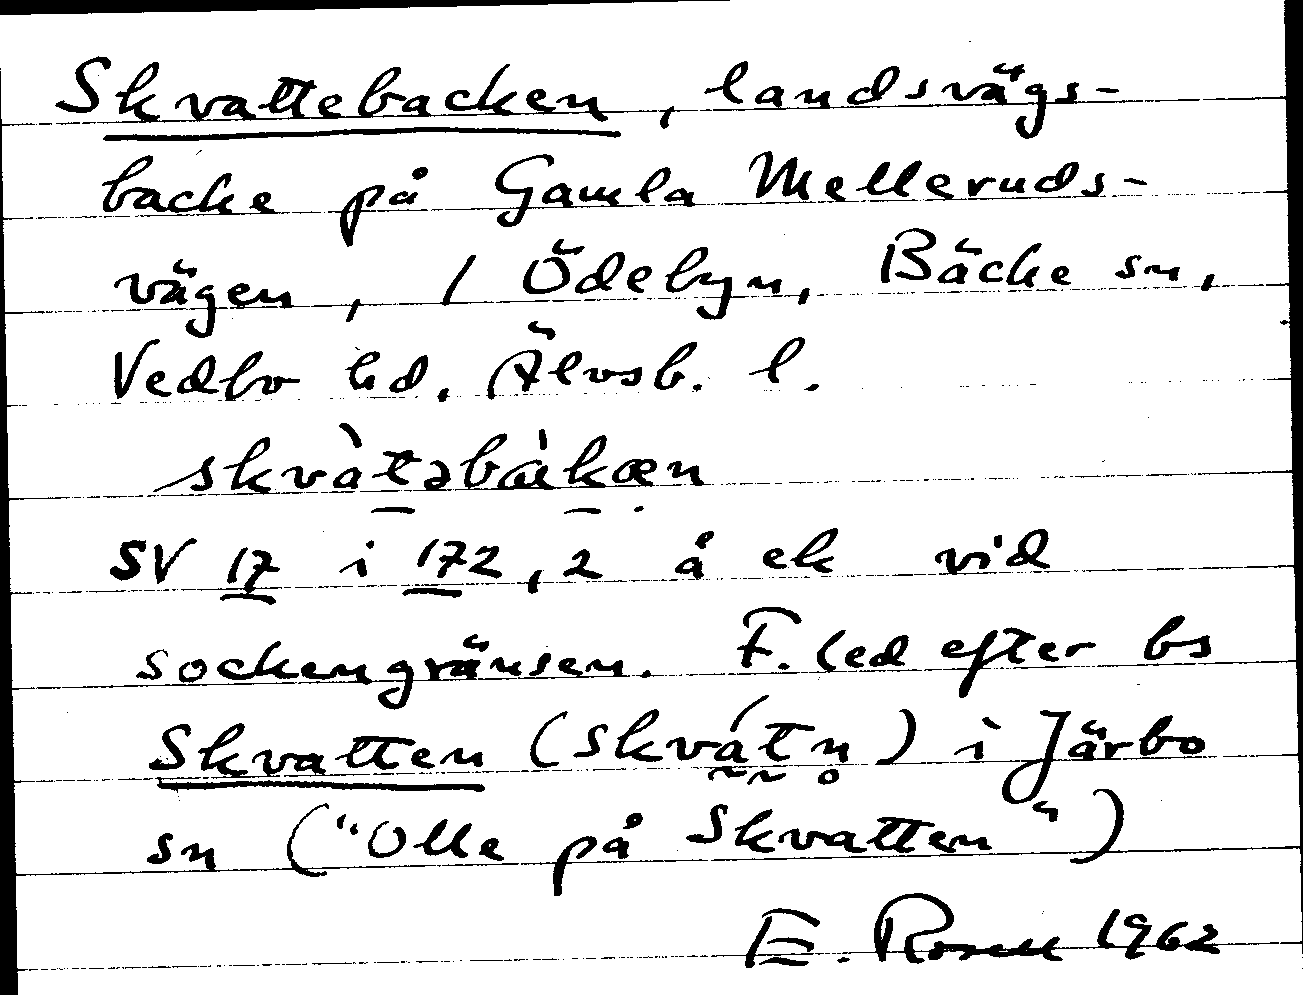 Skvattebacken, landsvägs-
backe på Gamla Melleruds-
vägen, i Ödebyn, Bäcke sn,
Vedbo hd. Älvsb. l.
skvàtəbàkæn
SV 17 i 172, 2 å ek vid
sockengränsen. F. led efter bs
Skvatten (skvátn̥) i Järbo
sn ("Olle på Skvatten")
E. Rosell 1962